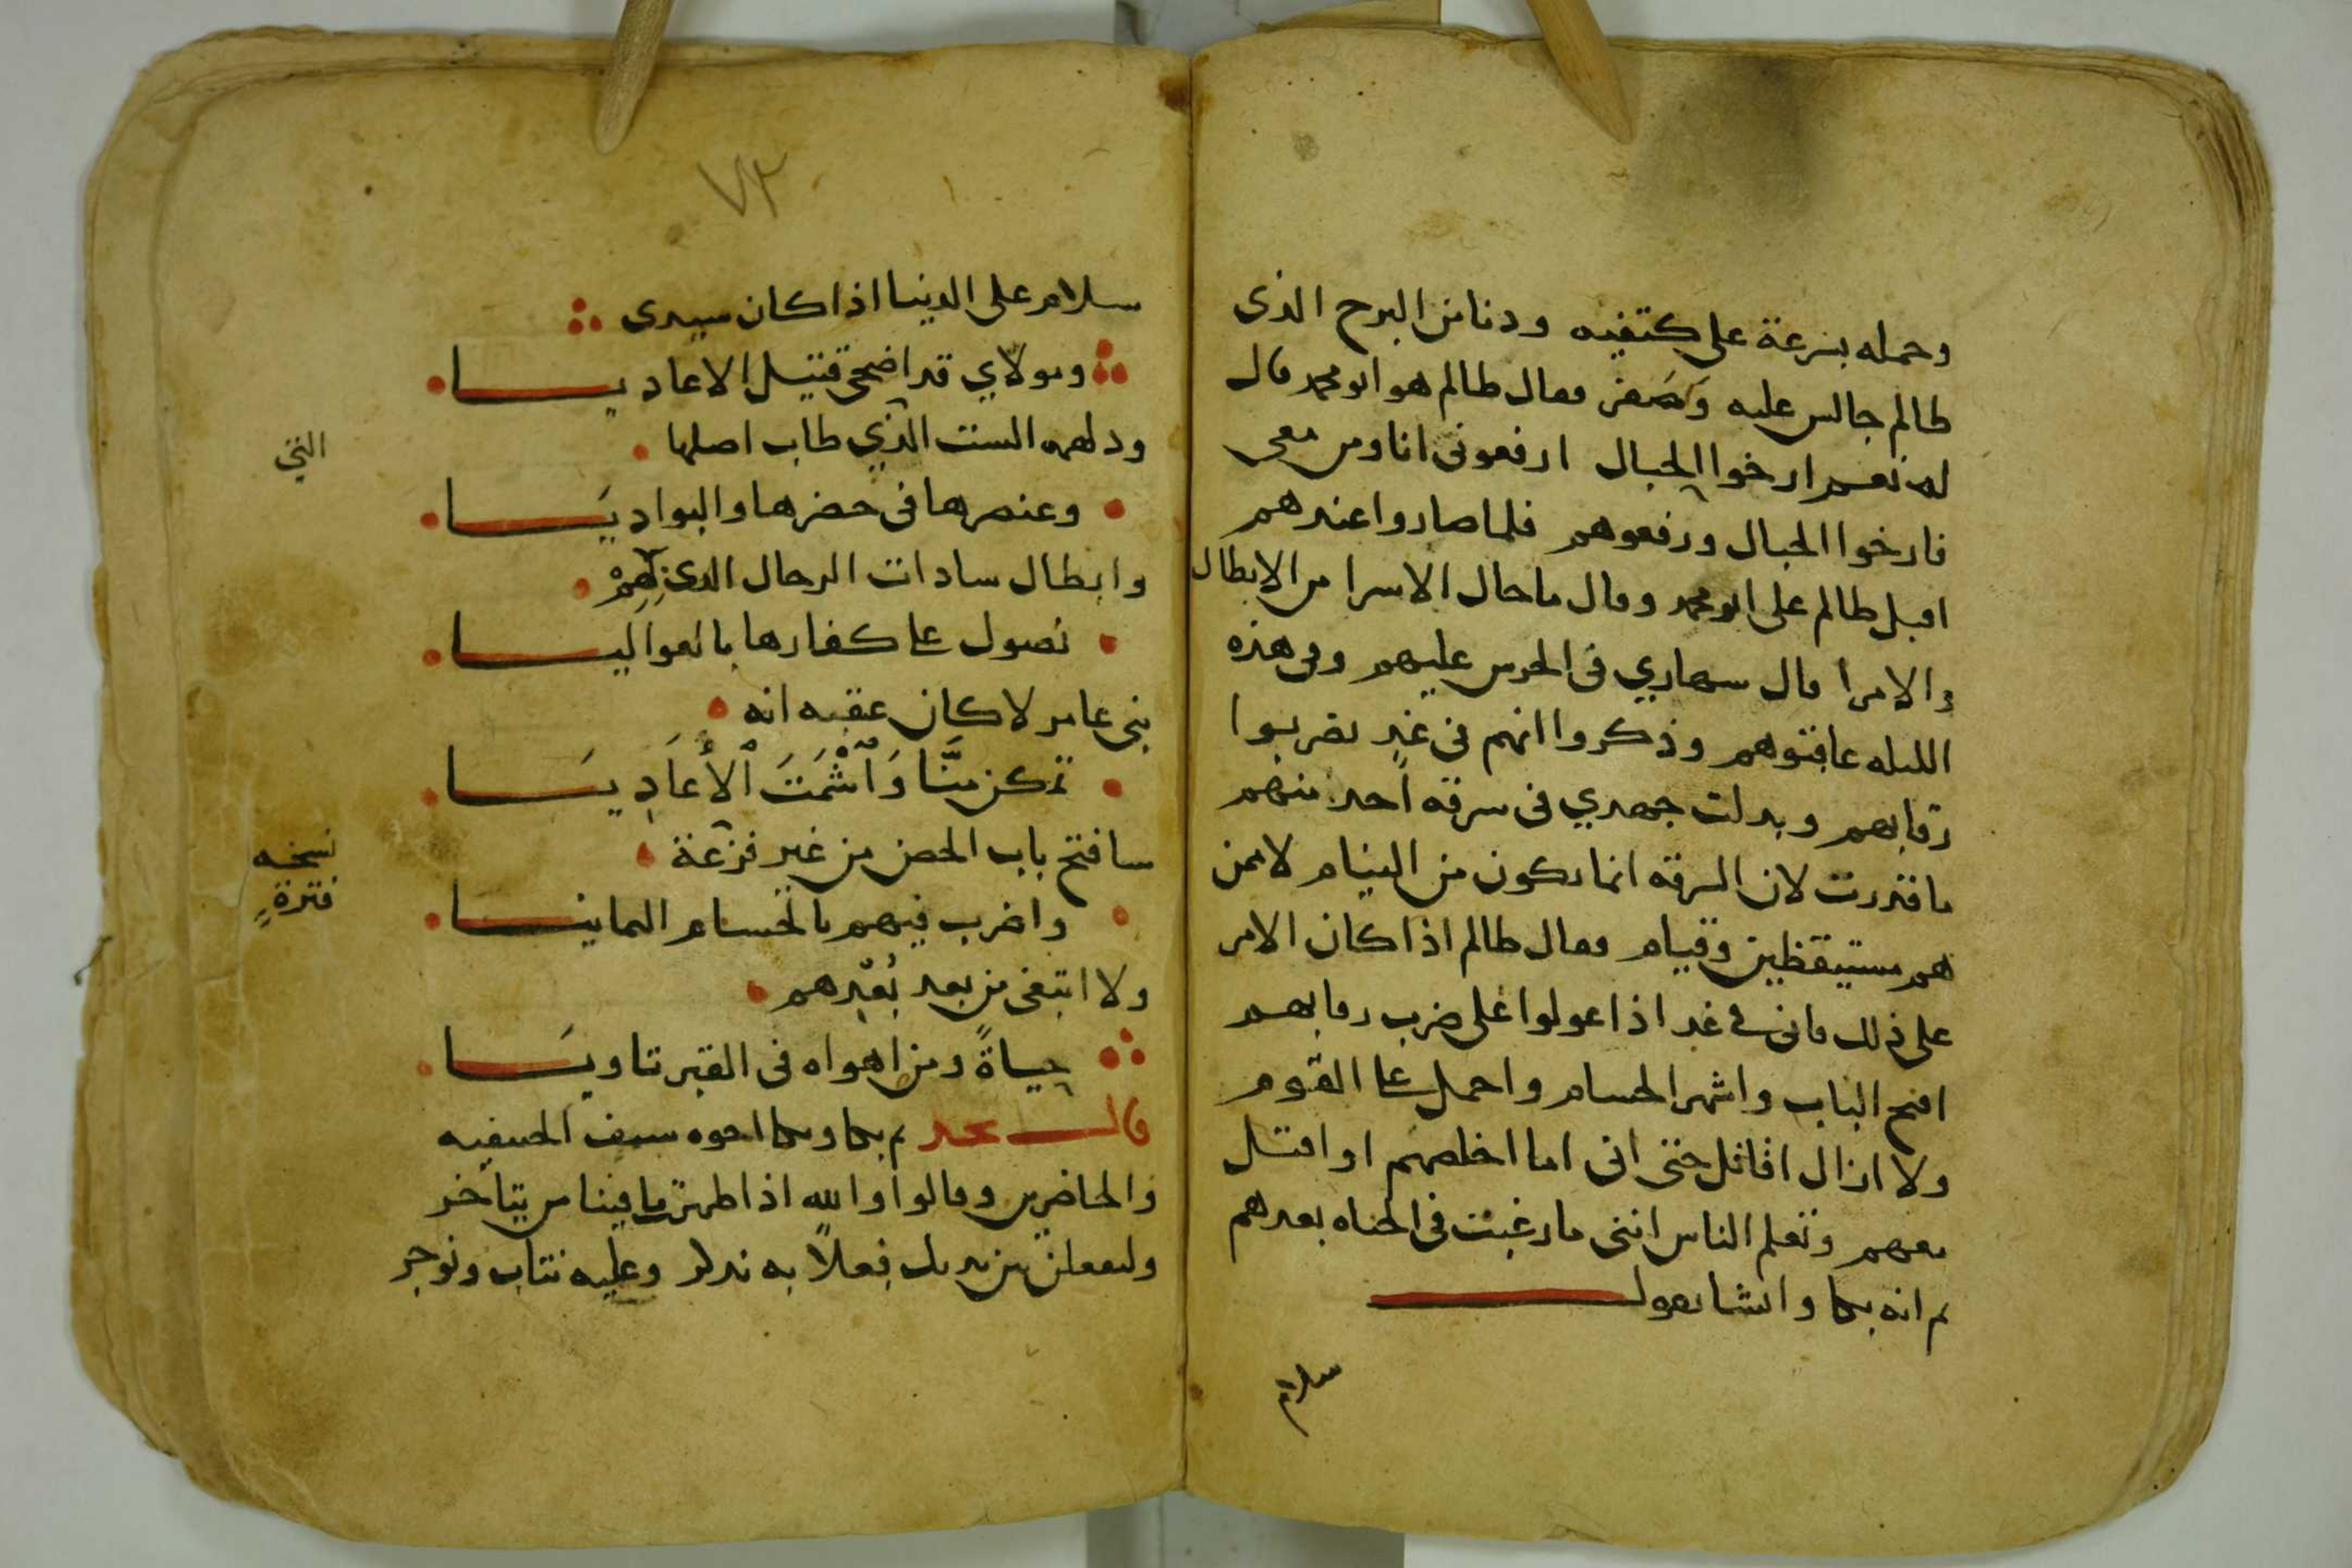 وحمله بسرعة على كتفيه ودنا من البرج الذى
ظالم جالس عليه وصفر فقال ظالم هو ابو محمد قال
له نعم ارخوا الحبال ارفعونى انا ومن معى
فارخوا الحبال ورفعوهم فلما صاروا عندهم
اقبل ظالم على ابو محمد وقال ما حال الاسرا من الابطال
والامرا قال سهارى فى الحرس عليهم وفى هذه
الليله عاقبوهم وذكروا انهم فى غدٍ يضربوا
رقابهم وبدلت جهدي فى سرقه احد منهم
ما قدرت لان السرقه انما تكون من النيام لا ممن
هم مستيقظين وقيام فقال ظالم اذا كان الامر
على ذلك فانى فى غد اذا عولوا على ضرب رقابهم
افتح الباب واشهر الحسام واحمل على القوم
ولا ازال اقاتل حتى انى اما اخلصهم او اقتل
معهم وتعلم الناس اننى ما رغبت فى الحياه بعدهم
ثم انه بكا وانشا يقول
سلام
٧٣
سلام على الدنيا اذا كان سيدى
ومولاي قد اضحى قتيل الاعاديا
ودلهمه الست الذي طاب اصلها
التي
وعنصرها فى حضرها والبواديا
وابطال سادات الرجال الذى لهم
تصول على كفارها بالعواليا
بنى عامر لا كان عقبه انه
تمكن منَّا وَاشْمَتَ الأَعَادِيَا
سافتح باب الحصن من غير فزعة
نسخه
فترةٍ
واضرب فيهم بالحسام اليمانيا
ولا ابتغى من بعد بُعْدِهم
حياةً ومن اهواه فى القبر تاويا
قال نجد ثم بكا وبكا اخوه سيف الحنيفيه
والحاضرين وقالوا والله اذا ظهرت ما فينا من يتاخر
ولنفعلن بين يديك فعلاً به نذكر وعليه نتاب ونوجر